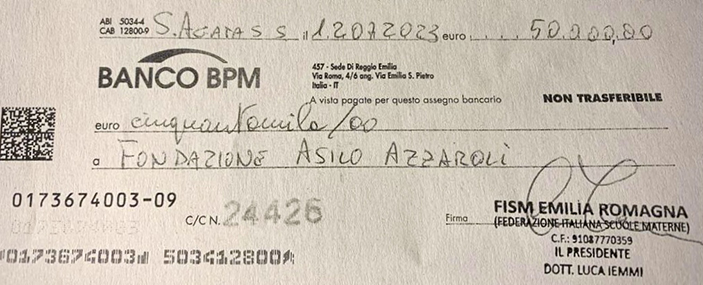 ABI 5034-4
CAB 12800-9
S. AGATA S S il 12072023 euro ....50.000,00
BANCO BPM
457 - Sede Di Reggio Emilia
Via Roma, 4/6 ang. Via Emilia S. Pietro
Italia - IT
A vista pagate per questo assegno bancario
NON TRASFERIBILE
euro cinquantamila/00
a FONDAZIONE ASILO AZZAROLI
0173674003-09
C/C N. 24426
Firma
FISM EMILIA ROMAGNA
(FEDERAZIONE ITALIANA SCUOLE MATERNE)
C.F.: 91087770359
IL PRESIDENTE
DOTT. LUCA IEMMI
0173674003 503412800